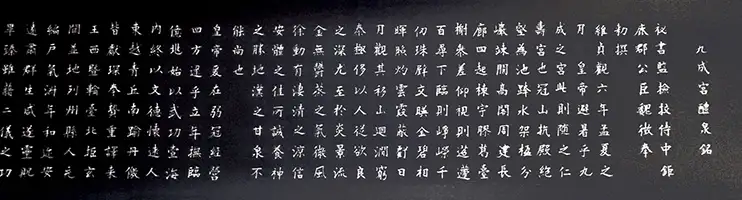 九成宮醴泉銘
秘書監檢校侍中鉅
鹿郡公臣魏徵奉
勅撰
維貞觀六年孟夏之
月 皇帝避暑乎九
成之宮此則隨之仁
壽宮也冠山抗殿絕
壑為池跨水架楹分
巖竦闕高閣周建長
廊四起棟宇膠葛臺
榭參差仰視則迢遞
百尋下臨則崢嶸千
仞珠璧交暎金碧相
暉照灼雲霞蔽虧日
月觀其移山迴澗窮
泰極侈以人從欲良
足深尤至於炎景流
金無鬱蒸之氣微風
徐動有淒清之涼信
安體之佳所誠養神
之勝地漢之甘泉不
能尚也
皇帝爰在弱冠經營
四方逮乎立年撫臨
億兆始以武功壹海
內終以文德懷遠人
東越青丘南踰丹徼
皆獻琛奉贄重譯來
王西暨輪臺北拒玄
闕並地列州縣人充
編戶氣淑年和邇安
遠肅群生咸遂靈貺
畢臻雖藉二儀之功